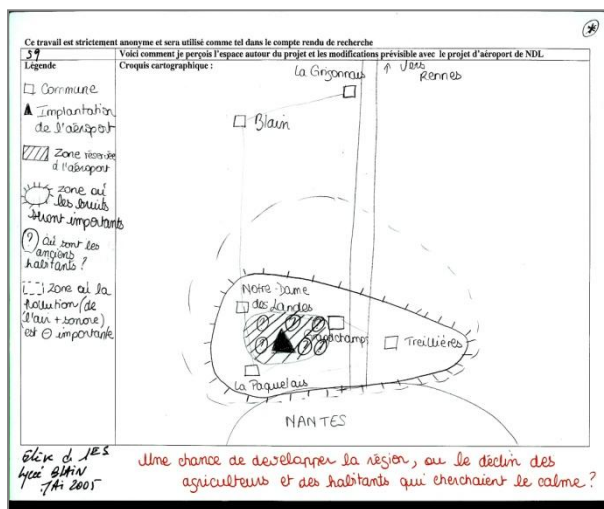 Ce travail est strictement anonyme et sera utilisé comme tel dans le compte rendu de recherche
59
Voici comment je perçois l'espace autour du projet et les modifications prévisible avec le projet d'aéroport de NDL
Légende
Commune
Implantation
de l'aéroport
Zone réservée
à l'aéroport
zone où
les bruits
seront importants
? où sont les
anciens
habitants ?
zone où la
pollution (de
l'air + sonore)
est ⊖ importante
Croquis cartographique :
La Grigonnais
↑ Vers
Rennes
Blain
Notre-Dame
des Landes
? ? ?
? ? ?
Treillières
La Paquelais
NANTES
élève d 1ES
Lycée BLAIN
2005
Une chance de developper la région, ou le déclin des
agriculteurs et des habitants qui cherchaient le calme ?